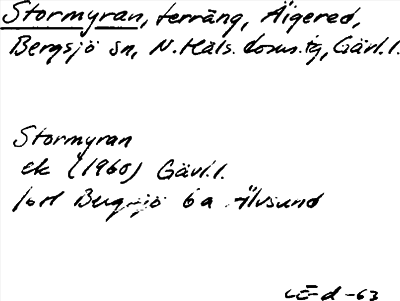 Stormyran, terräng, Äigered,
Bergsjö sn, N. Häls. doms.tg, Gävl.l.
Stormyran
ek (1960) Gävl.l.
Bergsjö 6a Älvsund
-63